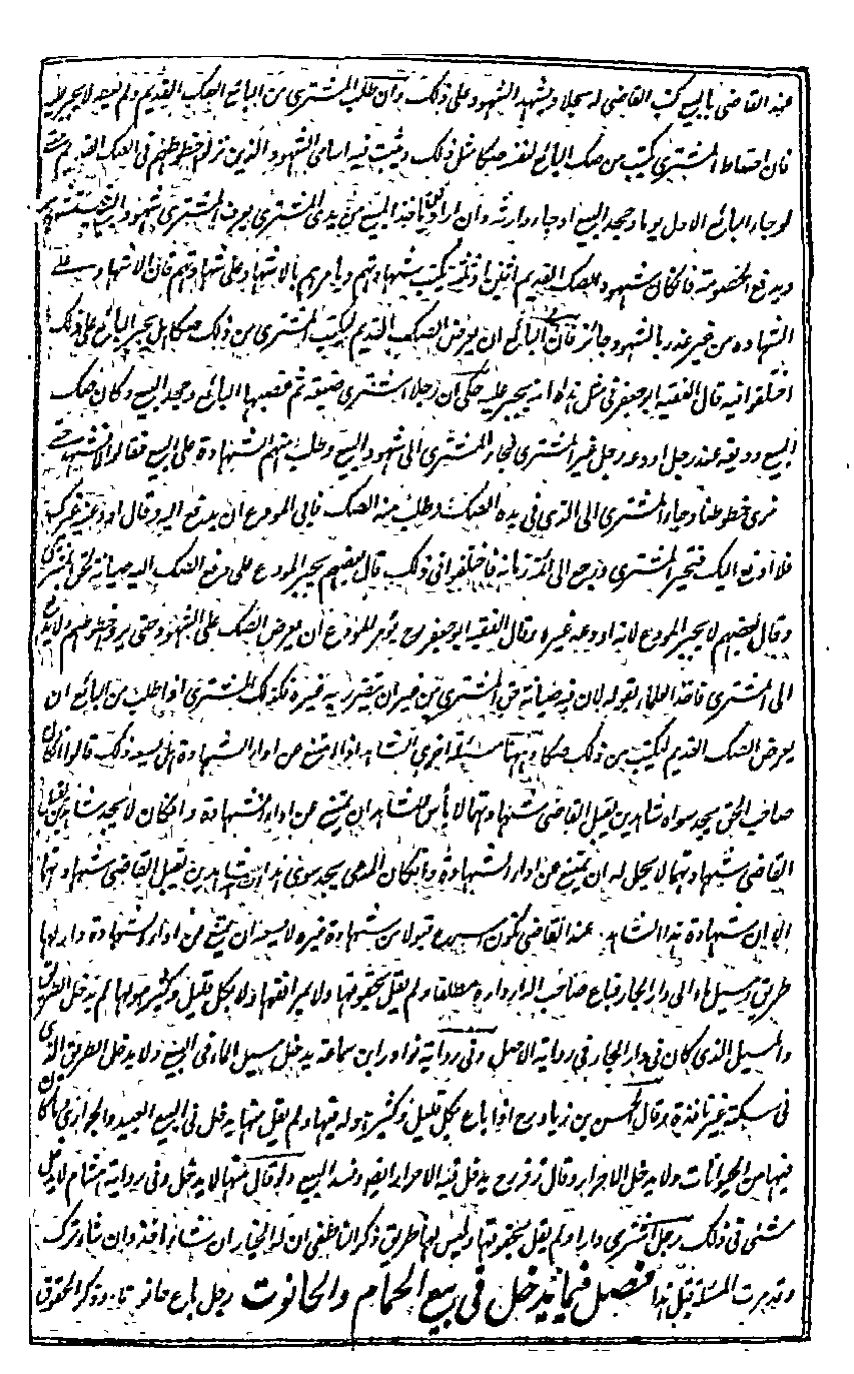 عند القاضى بالبيع كتب القاضى له سجلا ويشهد الشهود على ذلك وان طلب المشترى من البائع الصك القديم ولم
فان احتاط المشترى يكتب من صك البائع لنفسه صكا مثل ذلك ويثبت فيه اسامى الشهود الذين خطوطهم فى الصك القديم
لو جاء البائع الاول يوما وجحد البيع او جاء وارثه وان اراد اخذ المبيع من يدى المشترى يعرف المشترى شهود البيع
ويدفع الخصومة فان كان شهود الصك القديم اثنين او ثلثة يكتب شهادتهم ويامرهم بالاشهاد على شهادتهم فان الاشهاد على
الشهادة من غير عذر بالشهود جائز فان البائع ان يعرض الصك القديم ليكتب المشترى من ذلك صكا هل يجبر البائع على ذلك
اختلفوا فيه قال الفقيه ابو جعفر فى مثل هذا انه يجبر عليه حكى ان رجلا اشترى ضيعة ثم غصبها البائع وجحد البيع وكان صك
البيع وديعة عند رجل اودعه رجل غير المشترى فجاء المشترى الى شهود البيع وطلب منهم الشهادة على البيع فقالوا لا نشهد حتى
نرى خطوطنا وجاء المشترى الى الذى فى يده الصك وطلب منه الصك فابى المودع ان يدفع اليه وقال اودعنى غيرك
فلا ادفع اليك فتحير المشترى ورجع الى ائمة زمانه فاختلفوا فى ذلك قال بعضهم يجبر المودع على دفع الصك اليه صيانة لحق المشترى
وقال بعضهم لا يجبر المودع لانه اودعه غيره وقال الفقيه ابو جعفر رح يؤمر المودع ان يعرض الصك على الشهود حتى يروا خطوطهم ولا يدفع
الى المشترى فاخذ العلماء بقوله لان فيه صيانة حق المشترى من غير ان يتضرر به غيره فكذلك المشترى اذا طلب من البائع ان
يعرض الصك القديم ليكتب من ذلك صكا وههنا مسئلة اخرى الشاهد اذا امتنع من اداء الشهادة هل يسعه ذلك قالوا ان كان
صاحب الحق يجد سواه شاهدين يقبل القاضى شهادتهما لا بأس للشاهد ان يمتنع عن اداء الشهادة وان كان لا يجد شاهدين يقبل
القاضى شهادتهما لا يحل له ان يمتنع عن اداء الشهادة وان كان المدعى يجد سوى هذا الشاهد شاهدين يقبل القاضى شهادتهما
الا ان شهادة هذا الشاهد عند القاضى تكون اسرع قبولا من شهادة غيره لا يسعه ان يمتنع من اداء الشهادة دار لها
طريق ومسيل ماء الى دار الجار فباع صاحب الدار داره مطلقا ولم يقل بحقوقها ولا بمرافقها ولا بكل قليل وكثير هو لها لم يدخل الطريق
والمسيل الذى كان فى دار الجار فى رواية الاصل وفى رواية نوادر ابن سماعة يدخل مسيل الماء فى البيع ولا يدخل الطريق الذى
فى سكة غير نافذة وقال الحسن بن زياد رح اذا باع بكل قليل وكثير هو له فيها ولم يقل منها يدخل فى البيع العبيد والجوارى وما كان
فيها من الحيوانات ولا يدخل الاحرار وقال زفر رح يدخل فيه الاحرار ايضا ويفسد البيع ولو قال منها لا يدخل وفى رواية هشام لا يدخل
شئ فى ذلك رجل اشترى دارا ولم يقل بحقوقها وليس لها طريق ذكر الناطفى ان له الخيار ان شاء اخذ وان شاء ترك
وقد مرت المسئلة قبل هذا فصل فيما يدخل فى بيع الحمام والحانوت رجل باع حانوتا وذكر الحقوق